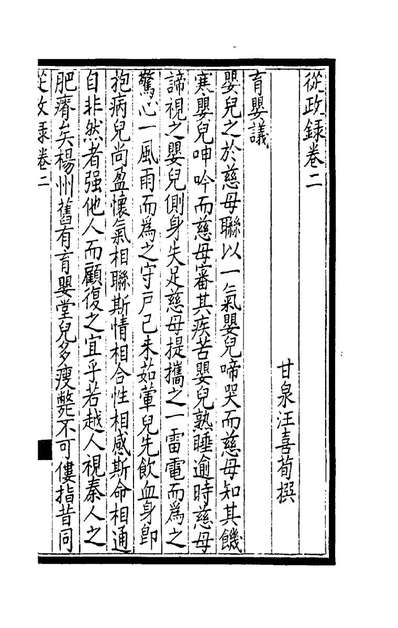 從政録卷二
甘泉汪喜荀撰
育嬰議
嬰兒之於慈母聯以一氣嬰兒啼哭而慈母知其饑
寒嬰兒呻吟而慈母審其疾苦嬰兒熟睡逾時慈母
諦視之嬰兒側身失足慈母提攜之一雷電而為之
驚心一風雨而為之守戸己未茹葷兒先飲血身卽
抱病兒尚盈懷氣相聯斯情相合性相感斯命相通
自非然者强他人而顧復之宜乎若越人視秦人之
肥瘠矣楊州舊有育嬰堂兒多瘦斃不可僂指昔同
從政録卷二